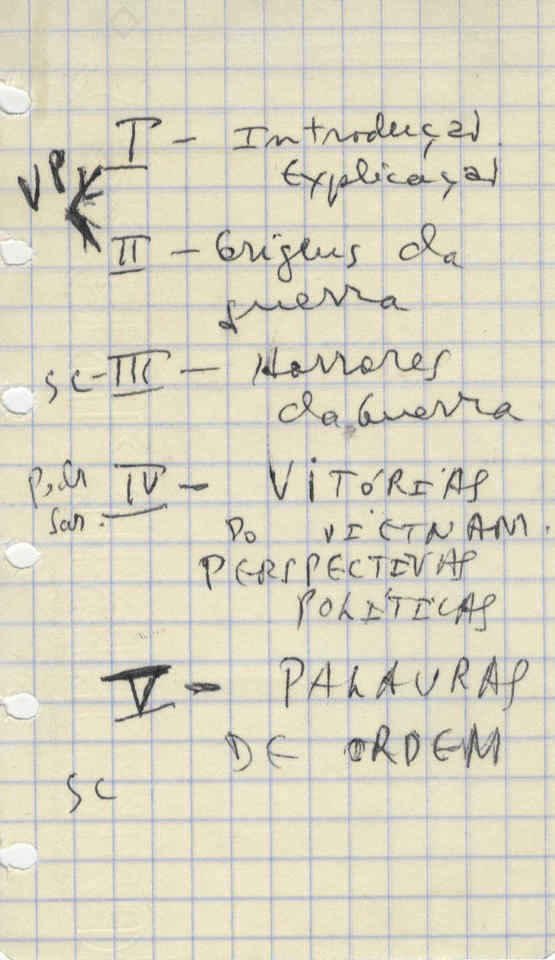 I - Introduçaõ
Explicaçaõ
VP
II - Origens da
guerra
SC - III - Horrores
da Guerra
IV - VITÓRIAS
San.
DO VIETNAM.
PERSPECTIVAS
POLÍTICAS
V - PALAVRAS
DE ORDEM
SC